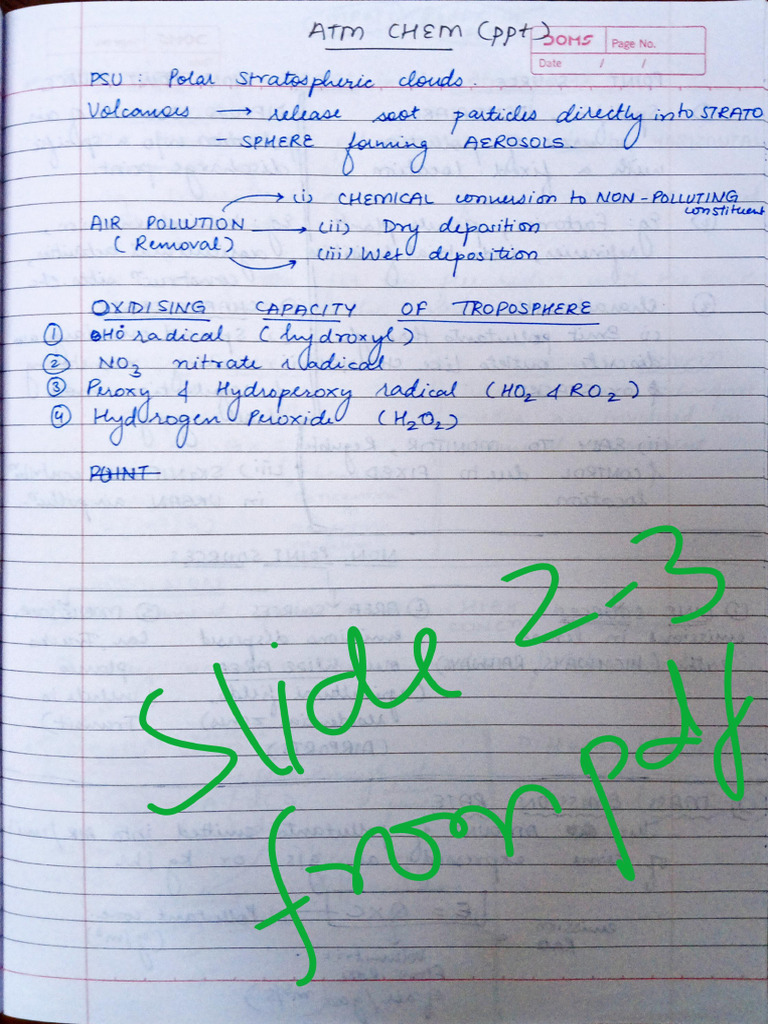 ATM CHEM (ppt)
DOMS
Page No.
Date / /
PSU : Polar Stratospheric clouds.
Volcanoes → release soot particles directly into STRATO
- SPHERE forming AEROSOLS.
(i) CHEMICAL conversion to NON-POLLUTING
constituent
AIR POLLUTION → (ii) Dry deposition
(Removal) (iii) Wet deposition
OXIDISING CAPACITY OF TROPOSPHERE
① OHO radical (hydroxyl)
② NO3 nitrate radical
③ Peroxy & Hydroperoxy radical (HO2 & RO2)
④ Hydrogen Peroxide (H2O2)
POINT
Slide 2-3
from pdf